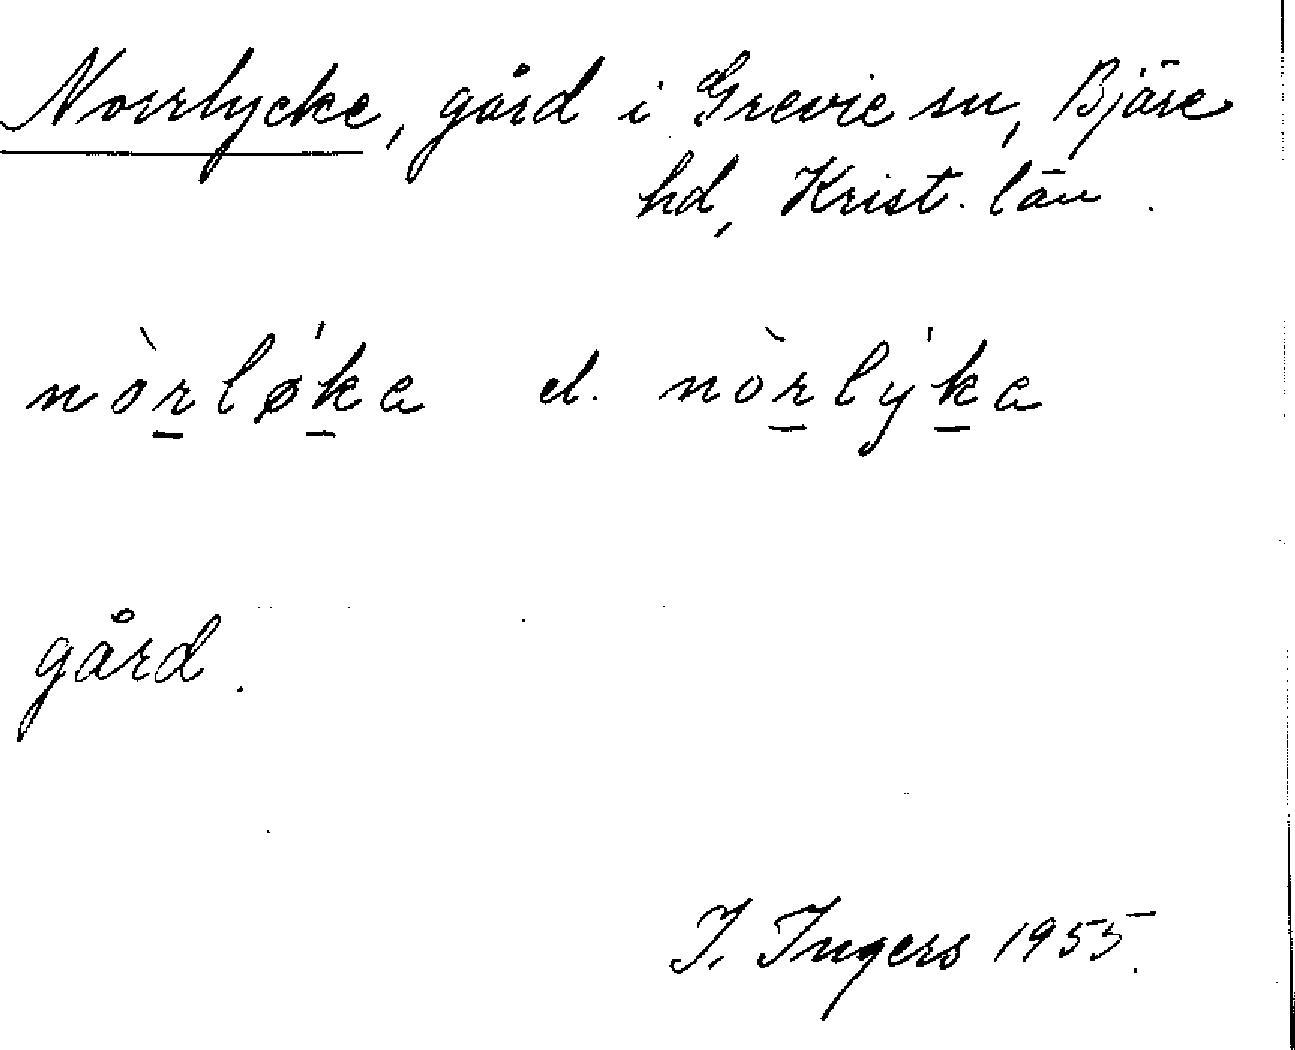 Norrlycke, gård i Grevie sn, Bjäre
hd, Krist. län.
nòr̲lǿk̲a el. nòr̲lýk̲a
gård.
I. Ingers 1955.